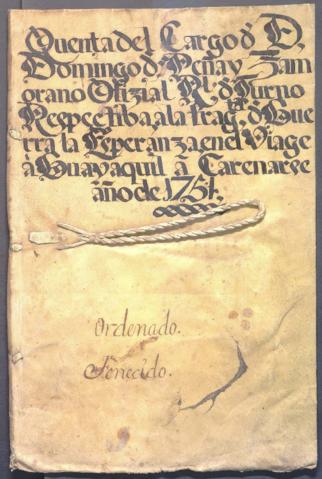 Quenta del Cargo đ D,
Domingo đ Peña y Zam
orano Ofizial Rl. đ Turno
Respectiba, a la fragta. đ Gue
rra la Esperanza en el Viage
à Guayaquil à Carenarse
año de 1751,
Ordenado.
Fenecido.